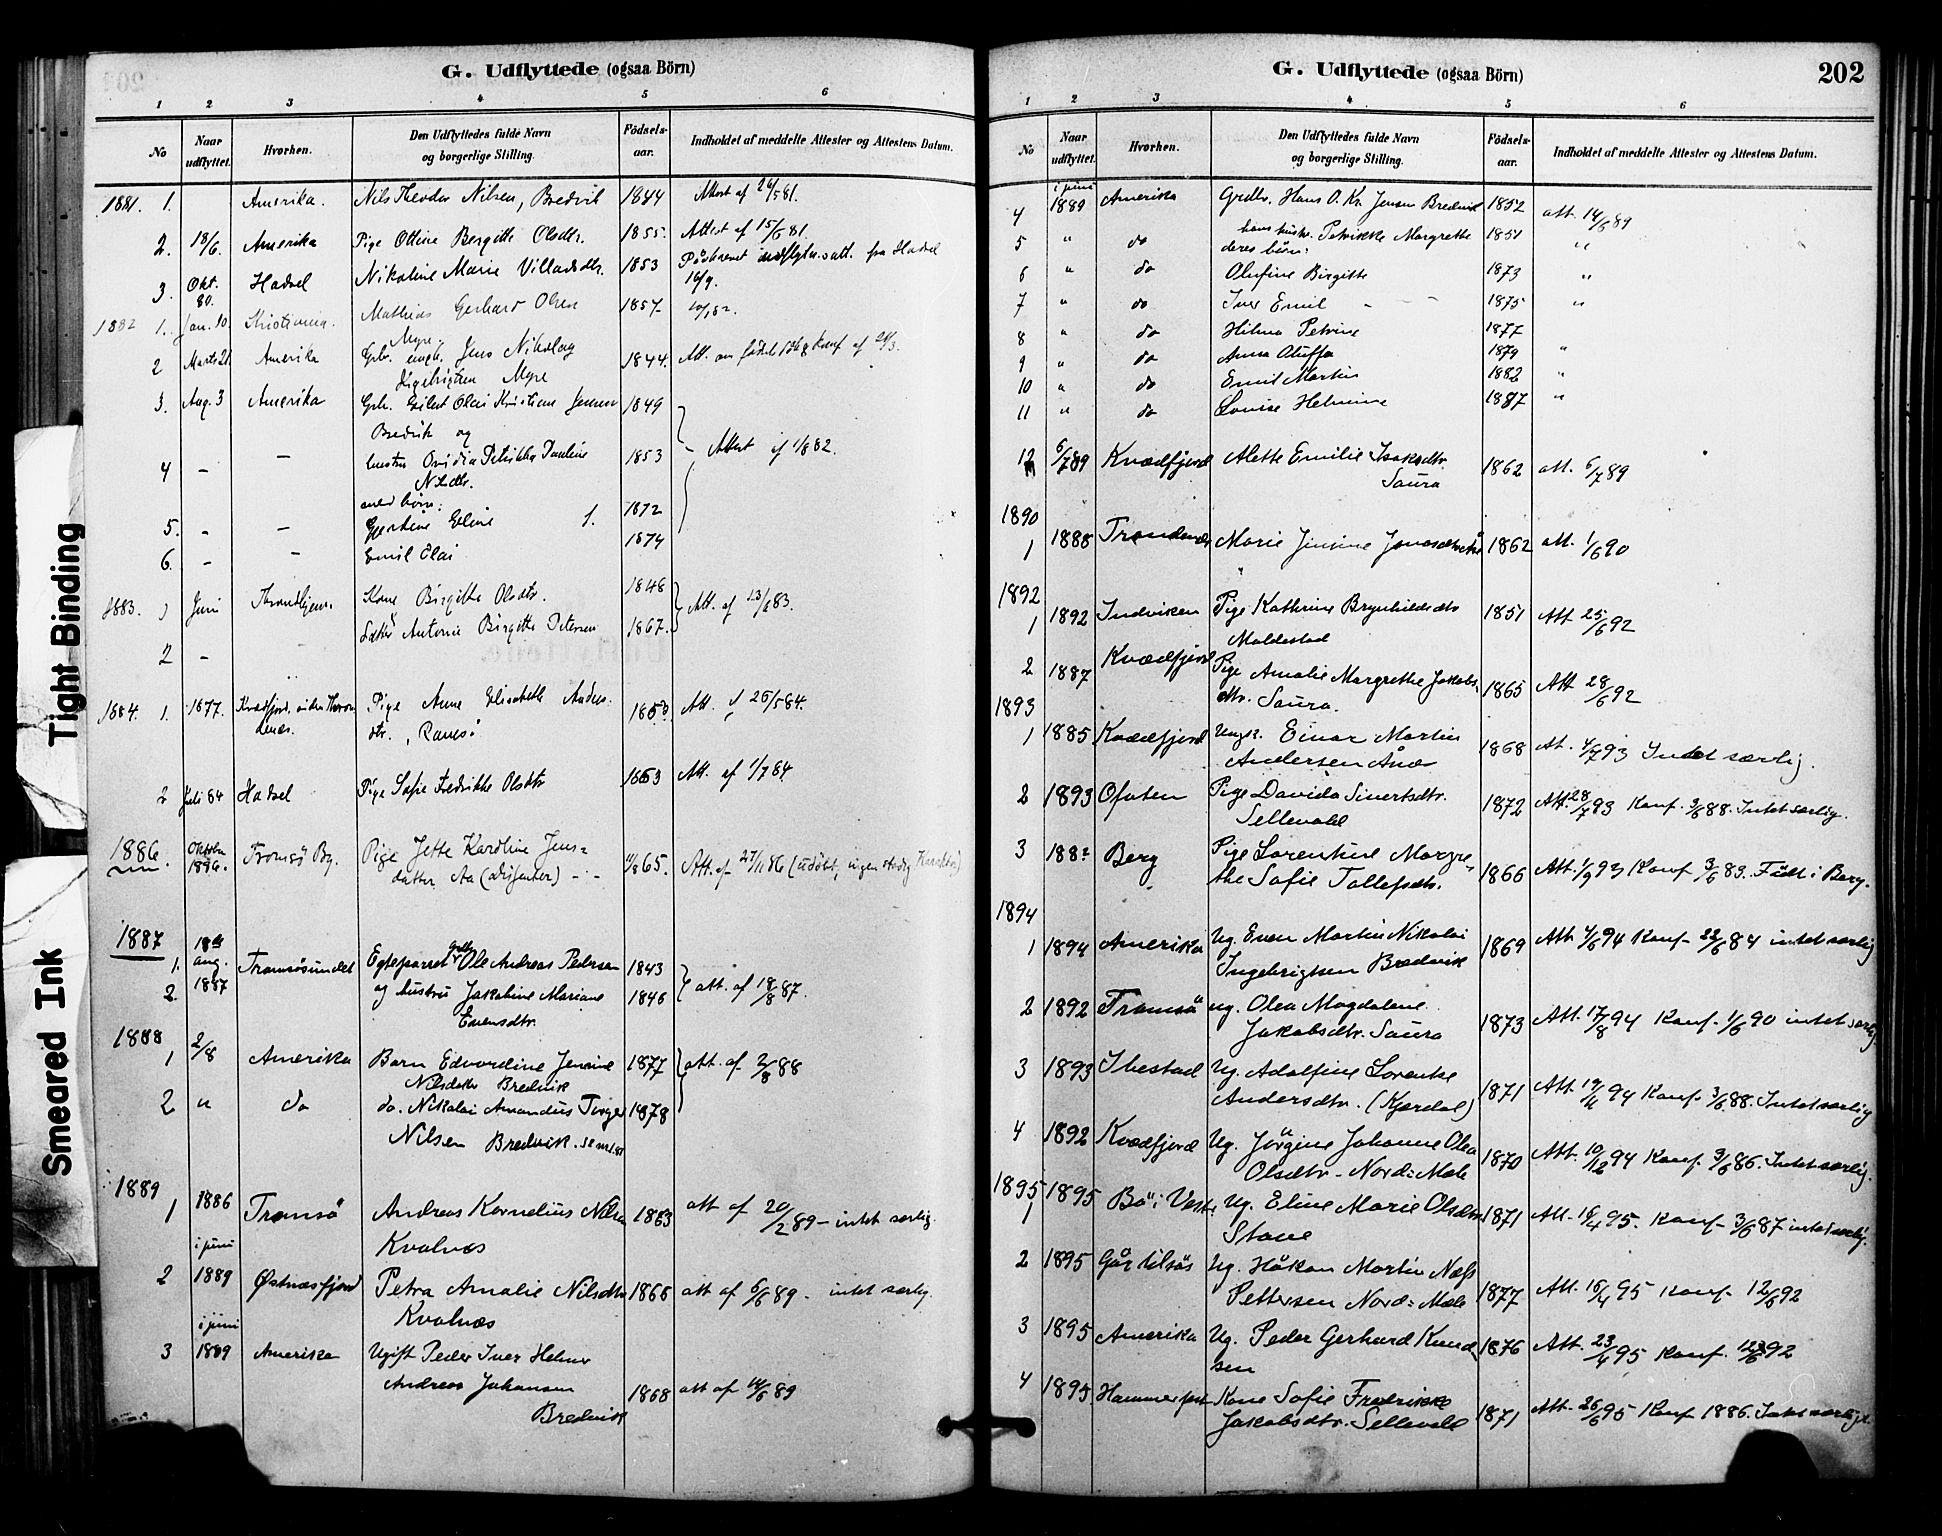 Tight Binding
Smeared Ink
G. Udflyttede (ogsaa Börn)
1 2 3 4 5 6
No Naar udflyttet. Hvorhen. Den Udflyttedes fulde Navn og borgerlige Stilling. Födsels-aar. Indholdet af meddelte Attester og Attestens Datum.
1881. 1. Amerika. Nils Theodor Nilsen, Bredvik 1844 Attest af 24/5 81.
2. 18/6. Amerika Pige Ottine Bergitte Olsdtr. 1855. Attest af 15/6 81.
3. Okt. 80. Hadsel Nikoline Marie Villadsdtr. 1853 fra Hadsel
16/9.
1882 1. Jan. 10. Kristiania. Mathias Gerhard Olsen 1857
Myre
2 Marts 21 Amerika Jens Nikolay 1844. Att. om
Myre
3. Aug. 3 Amerika Olai Kristian Jensen 1849
Bredvik og
4 - - hustru Ovidia Petrikka Pauline 1853 - Attest af 1/8 82.
Nilsdtr.
med börn:
5. - - Eline 1. 1872
6. - - Emil Olai 1874
1883. 1 Juni Throndhjem. Kone Birgitte Olsdtr. 1848 Att. af 13/6 83.
2 - Antonie Birgitte Petersen 1867.
1884. 1. 1877. Pige Anne Elisabeth Anders- Att. af 26/5 84.
dtr.,
2 Juli 84 Hadsel Pige Sofie Fredrikke Olsdtr 1663 Att. af 1/7 84.
1886. Oktober 1886. Tromsö By. Pige Jette Karoline Jens= 11/8 65. Att. af 27/11 86 (udöbt, ingen
datter Aa (Dissenter) - -
1887
1. 18de aug. 1887 Tromsösundet Egteparret Ole Andreas Pedersen 1843 att. af 18/8 87.
2. og hustru Jakobine Mariane 1846
Evensdtr.
1888
1 2/8 Amerika Barn Edvardine Jensine 1877 att. af 2/8 88
Nilsdatter Bredvik
2 " do do. Nikolai Amandus Torger 1878
Nilsen Bredvik.
1889
1 1886 Tromsö Andreas Kornelius Nilsen 1863 att af 20/2 89 - intet særlig.
Kvalnæs
2 i juni 1889 Østnæsfjord Petra Amalie Nilsdtr 1866 att af 6/6 89. - intet særlig.
Kvalnæs
3 i juni 1889 Amerika Ugift Peder Iver Helmer
Andreas Johansen 1868 att af 14/6 89
Bredvik
G. Udflyttede (ogsaa Börn)
202
1 2 3 4 5 6
No Naar udflyttet. Hvorhen. Den Udflyttedes fulde Navn og borgerlige Stilling. Födsels-aar. Indholdet af meddelte Attester og Attestens Datum.
4 i juni 1889 Amerika Grdbr. Hans O. Kr. Jensen Bredvik 1852 att. 14/6 89
5 " do hans hustr. Petrikke Margrethe 1851 "
deres börn:
6 " do Olufine Birgitte 1873 "
7 " do Iver Emil - - 1875 "
8 " do Hilma Petrine 1877
9 " do Anna Oluffa 1879 "
10 " do Emil Martin 1882 "
11 " do Lovise Helmine 1887 "
12 6/7 89 Kvædfjord Alette Emilie Isaksdtr. 1862 att. 6/7 89
Saura
1890
1 1888 Trondenæs Marie Jensine 1862 att. 1/6 90
1892
1 1892 Indviken Pige Kathrine Brynhildsdtr 1851 Att 25/6 92
Moldestad
2 1887 Kvædfjord Pige Amalie Margrethe Jakobs- 1865 Att 28/6 92
dtr. Saura.
1893
1 1885 Kvædfjord Ungk. Einar Martin 1868 At. 4/7 93 Intet særlig.
Andersen Ånæs
2 1893 Ofoten Pige Davida Sivertsdtr. 1872 Att. 28/7 93 Konf. 3/6 88. Intet særlig.
Sellevold
3 188? Berg Pige Lorentine Margre- 1866 Att. 1/9 93 Konf 3/6 83. Födt i Berg.
the Sofie Tollefsdtr.
1894
1 1894 Amerika Ug. Even Martin Nikolai 1869 Att 4/6 94 Konf- 22/6 84 intet særlig
Ingebrigtsen Bredvik
2 1892 Tromsö ug. Olea Magdalene 1873 Att. 17/8 94 Konf- 1/6 90 intet særlig
Jakobsdtr. Saura
3 1893 Ibestad Ug. Adolfine Lorentse 1871 Att. 94 Konf- 3/6 88. Intet særlig
Andersdtr. (Kjærdal)
4 1892 Kvædfjord Ug. Jörgine Johanne Olea 1870 Att. 10/12 94 Konf. 86. Intet særlig.
Olsdtr - Nord=Mæle
1895
1 1895 Bö i Vest. Ug. Eline Marie Olsdtr 1871 Att- 16/4 95. Konf- 3/6 87 intet særlig.
Stave
2 1895 Går tilsjös Ug. Håkon Martin Næss 1877 Att. 16/4 95 Konf- 12/6 92
Pettersen Nord=Mæle
3 1895 Amerika Ug. Peder Gerhard Knud- 1876 Att. 23/4 95 Konf. 12/6 92
sen
4 1895 Hammerfest Kone Sofie Fredrikke 1871 Att- 26/6 95 Konf 1886. Intet særligt.
Jakobsdtr. Sellevold